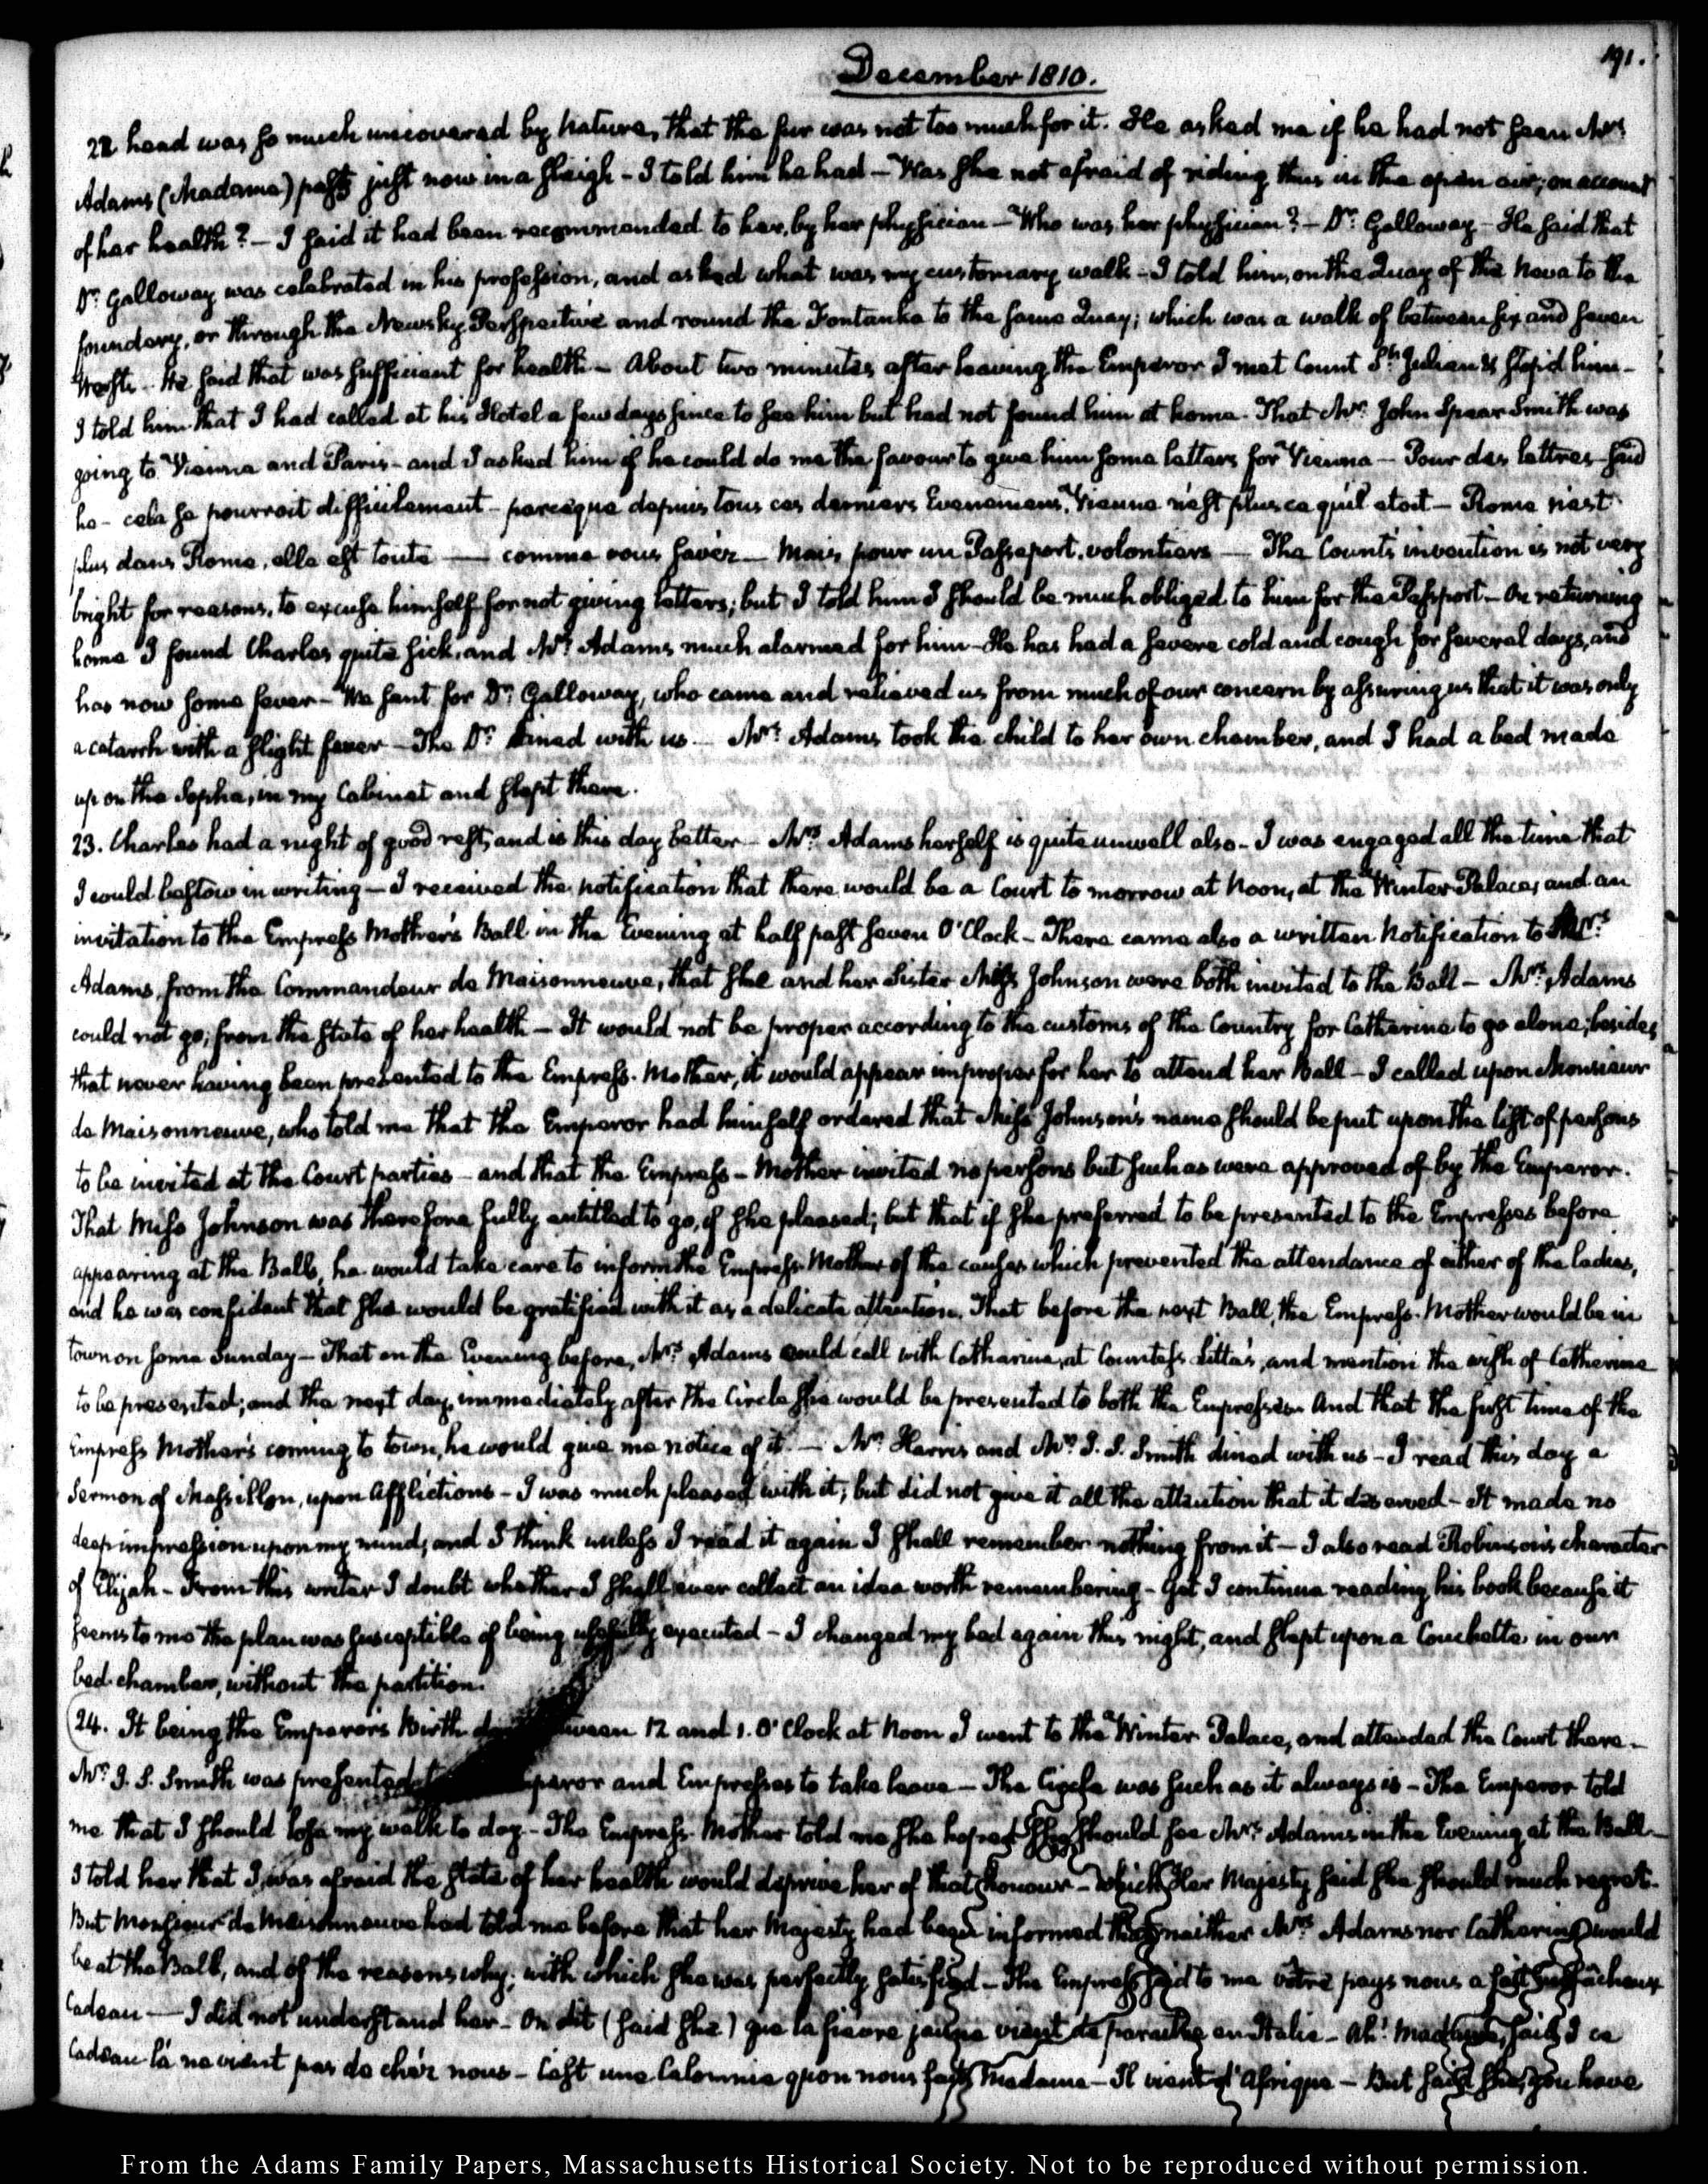 December 1810.
191.
22 head was so much uncovered by Nature, that the fur was not too much for it. He asked me if he had not seen Mrs
Adams (Madame) pass just now in a sleigh - I told him he had - Was she not afraid of riding thus in the open air, on account
of her health? - I said it had been recommended to her, by her physician - Who was her physician? - Dr. Galloway - He said that
Dr. Galloway was celebrated in his profession, and asked what was my customary walk - I told him, on the Quay of the Neva to the
foundery, or through the Newsky Perspective and round the Fontanka to the same Quay; which was a walk of between six and seven
Wersts - He said that was sufficient for health - About two minutes after leaving the Emperor I met Count St. Julien & stop'd him -
I told him that I had called at his Hotel a few days since to see him but had not found him at home. That Mr. John Spear Smith was
going to Vienna and Paris - and I asked him if he could do me the favour to give him some letters for Vienna - Pour des lettres - said
he - cela se pourroit difficilement - parceque depuis tous ces derniers Evenemens, Vienne n'est plus ce qu'il etoit - Rome n'est
plus dans Rome, elle est toute —— comme vous savéz - Mais pour un Passeport, volontiers - The Count's invention is not very
bright for reasons, to excuse himself for not giving letters; but I told him I should be much obliged to him for the Passport - On returning
home I found Charles quite sick, and Mrs. Adams much alarmed for him - He has had a severe cold and cough for several days, and
has now some fever - We sent for Dr. Galloway, who came and relieved us from much of our concern by assuring us that it was only
a catarrh with a slight fever - The Dr. dined with us - Mrs. Adams took the child to her own chamber, and I had a bed made
up on the Sopha, in my Cabinet and slept there.
23. Charles had a night of good rest, and is this day better - Mrs. Adams herself is quite unwell also - I was engaged all the time that
I could bestow in writing - I received the notification that there would be a Court to morrow at Noon, at the Winter Palace, and an
invitation to the Empress Mother's Ball in the Evening at half past seven O'Clock - There came also a written Notification to Mrs.
Adams, from the Commandeur de Maisonneuve, that she and her Sister Miss Johnson were both invited to the Ball - Mrs. Adams
could not go, from the state of her health - It would not be proper according to the customs of the Country for Catherine to go alone; besides
that never having been presented to the Empress-Mother, it would appear improper for her to attend her Ball - I called upon Monsieur
de Maisonneuve, who told me that the Emperor had himself ordered that Miss Johnson's name should be put upon the list of persons
to be invited at the Court parties - and that the Empress-Mother invited no persons but such as were approved of by the Emperor.
That Miss Johnson was therefore fully entitled to go, if she pleased; but that if she preferred to be presented to the Empresses before
appearing at the Balls, he would take care to inform the Empress-Mother of the causes which prevented the attendance of either of the ladies,
and he was confident that she would be gratified with it as a delicate attention. That before the next Ball, the Empress-Mother would be in
town on some Sunday - That on the Evening before, Mrs. Adams could call with Catharine, at Countess Litta's, and mention the wish of Catherine
to be presented; and the next day, immediately after the Circle she would be presented to both the Empresses. And that the first time of the
Empress Mother's coming to town, he would give me notice of it. - Mr. Harris and Mr. J. S. Smith dined with us - I read this day a
Sermon of Massillon, upon Afflictions - I was much pleased with it; but did not give it all the attention that it deserved - It made no
deep impression upon my mind; and I think unless I read it again I shall remember nothing from it - I also read Robinson's character
of Elijah - From this writer I doubt whether I shall ever collect an idea worth remembering - Yet I continue reading his book because it
seems to me the plan was susceptible of being usefully executed - I changed my bed again this night, and slept upon a Couchette in our
bed-chamber, without the partition.
24. It being the Emperor's Birth 12 and 1. O'Clock at Noon I went to the Winter Palace, and attended the Court there -
Mr. J. S. Smith was presented and Empresses to take leave - The Circle was such as it always is - The Emperor told
me that I should lose my walk to day - The Empress-Mother told me she hoped she should see Mrs. Adams in the Evening at the Ball -
I told her that I was afraid the state of her health would deprive her of that honour - which Her Majesty said she should much regret -
But Monsieur de Maisonneuve had told me before that her Majesty had been informed that neither Mrs. Adams nor Catharine would
be at the Ball, and of the reasons why; with which she was perfectly satisfied - The Empress said to me vôtre pays nous a fait un fâcheux
Cadeau —— I did not understand her - On dit (said she) que la fievre jaune vient de paraitre en Italie - Ah! Madame, said I ce
Cadeau là ne vient pas de chéz nous - C'est une Calomnie qu'on nous fait, Madame - Il vient d'Afrique - But said she, you have
From the Adams Family Papers, Massachusetts Historical Society. Not to be reproduced without permission.